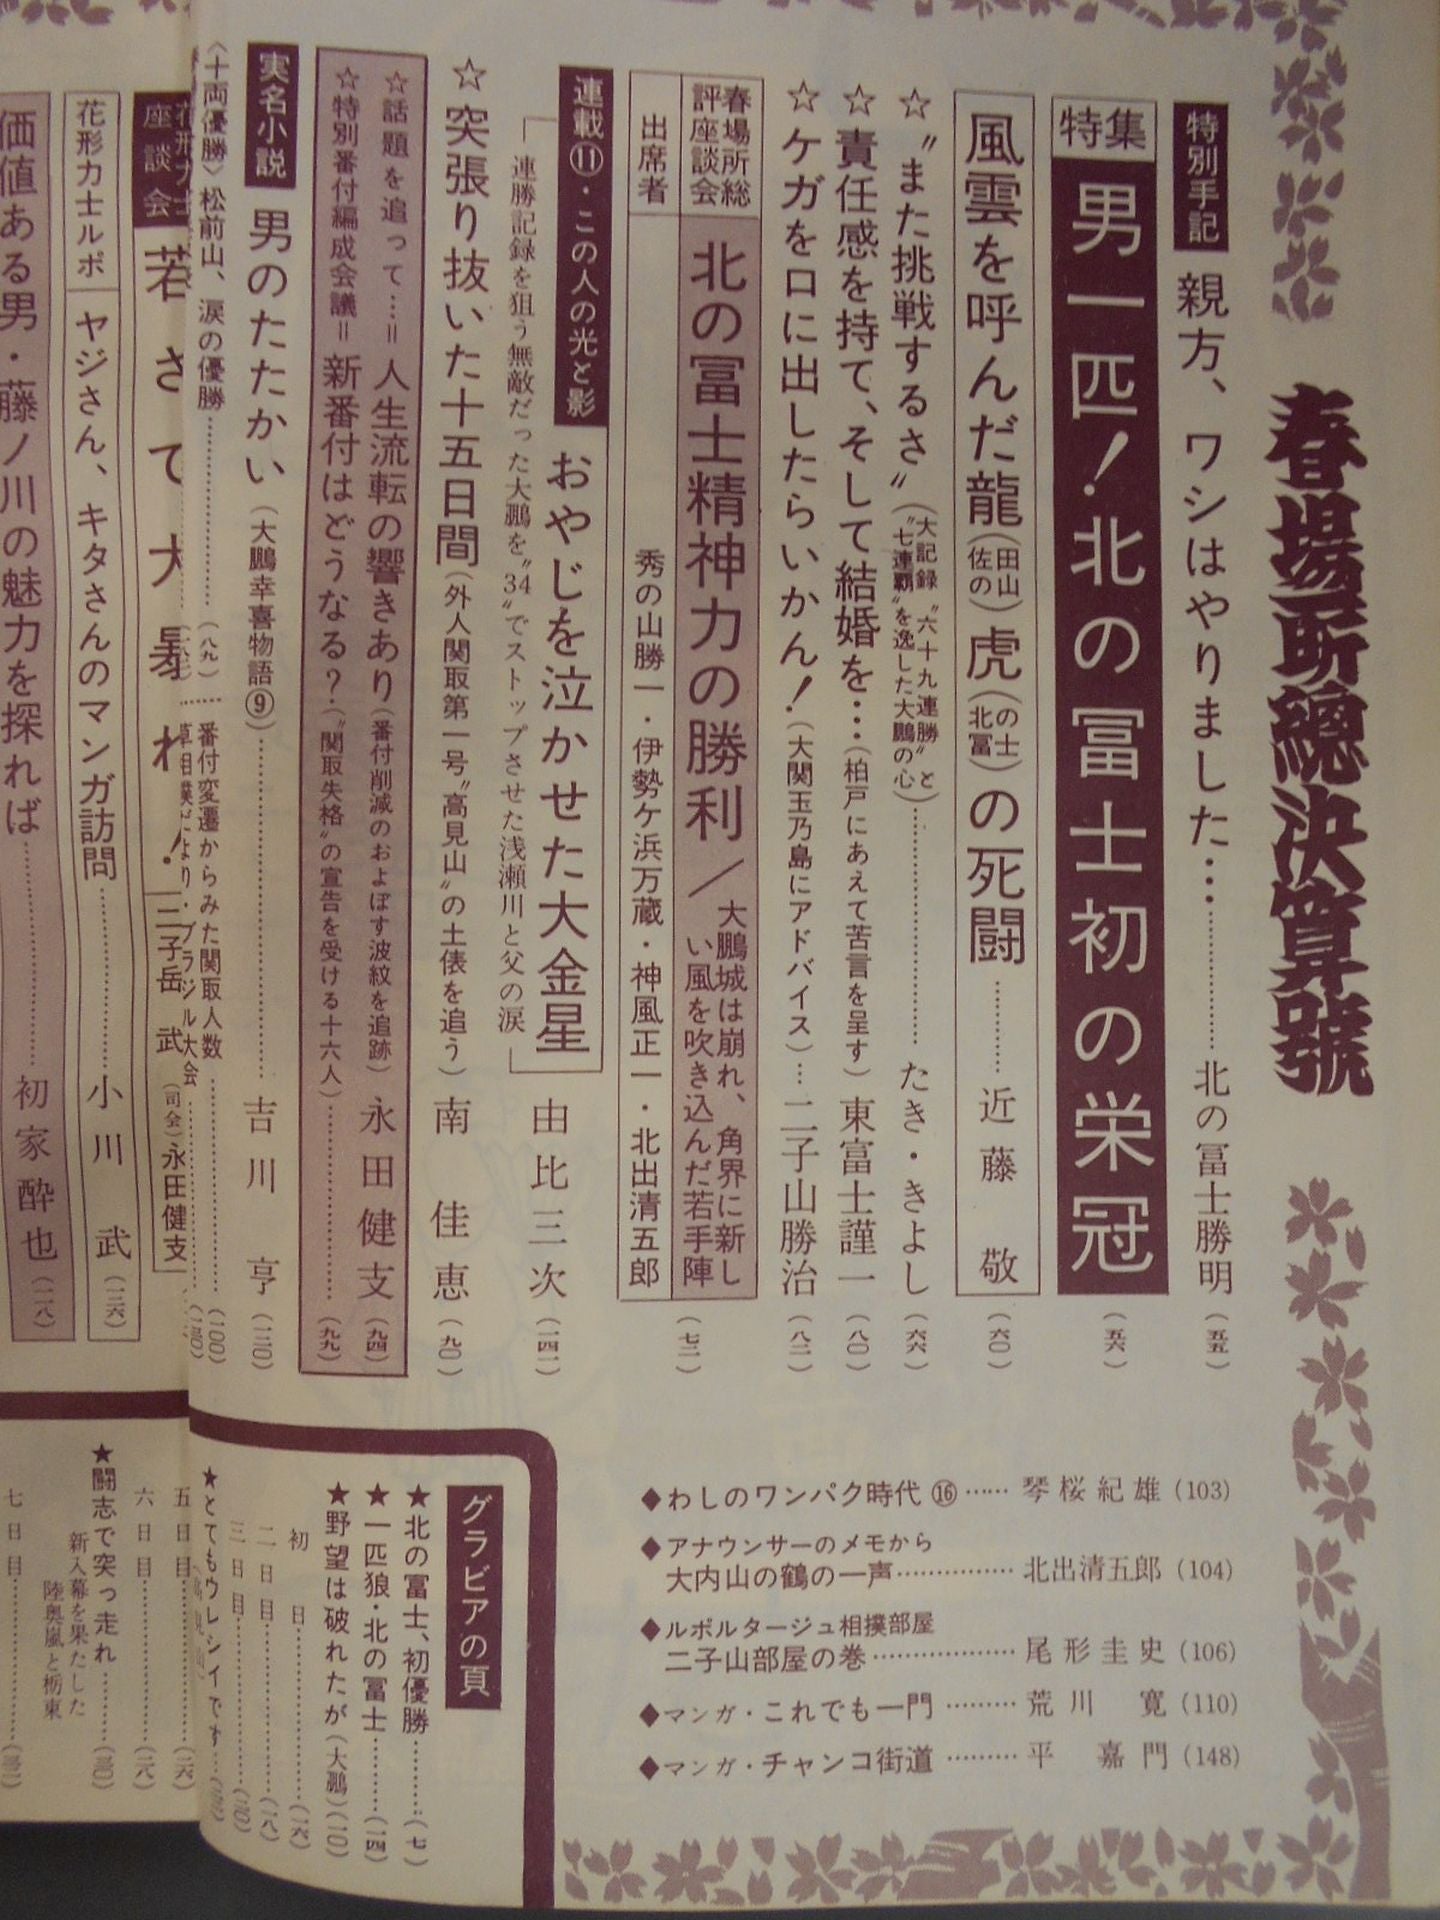 春場所總決算號
特別手記 親方、ワシはやりました…………北の冨士勝明(五五)
特集 男一匹!北の冨士初の栄冠(五六)
風雲を呼んだ龍(佐田の山)虎(北の冨士)の死闘…………近藤 敬(六〇)
☆〝また挑戦するさ〟(大記録〝六十九連勝〟と〝七連覇〟を逸した大鵬の心)…………たき・きよし(六六)
☆責任感を持て、そして結婚を…(柏戸にあえて苦言を呈す)東富士謹一(八〇)
☆ケガを口に出したらいかん!(大関玉乃島にアドバイス)…二子山勝治(八二)
春場所総評座談会 北の冨士精神力の勝利/大鵬城は崩れ、角界に新しい風を吹き込んだ若手陣(七二)
出席者 秀の山勝一・伊勢ケ浜万蔵・神風正一・北出清五郎
連載⑪・この人の光と影 おやじを泣かせた大金星 由比三次(一四二)
「連勝記録を狙う無敵だった大鵬を〝34〟でストップさせた浅瀬川と父の涙」
☆突張り抜いた十五日間(外人関取第一号〝高見山〟の土俵を追う)南 佳恵(九〇)
☆話題を追って…=人生流転の響きあり(番付削減のおよぼす波紋を追跡)永田健支(九四)
☆特別番付編成会議=新番付はどうなる?(〝関取失格〟の宣告を受ける十六人)…………(九九)
実名小説 男のたたかい(大鵬幸喜物語⑨)…………吉川 亨(一二〇)
〈十両優勝〉松前山、涙の優勝…………(八九)
番付変遷からみた関取人数…………(一〇〇)
座談会 若さで大暴れ! 二子岳 武 (司会)永田健支
花形力士ルポ ヤジさん、キタさんのマンガ訪問…………小川 武(一三六)
価値ある男・藤ノ川の魅力を探れば…………初家酔也(一二八)
◆わしのワンパク時代⑯……琴桜紀雄(103)
◆アナウンサーのメモから
大内山の鶴の一声……………北出清五郎(104)
◆ルポルタージュ相撲部屋
二子山部屋の巻………………尾形圭史(106)
◆マンガ・これでも一門………荒川 寛(110)
◆マンガ・チャンコ街道………平 嘉門(148)
グラビアの頁
★北の冨士、初優勝…………(七)
★一匹狼・北の冨士…………(一四)
★野望は破れたが(大鵬)(一〇)
初日…………(一六)
二日目…………(一八)
三日目…………(二〇)
★とてもウレシイです…
五日目…………(二六)
六日目…………(二八)
★闘志で突っ走れ……(三〇)
新入幕を果たした
陸奥嵐と栃東
七日目…………(三二)